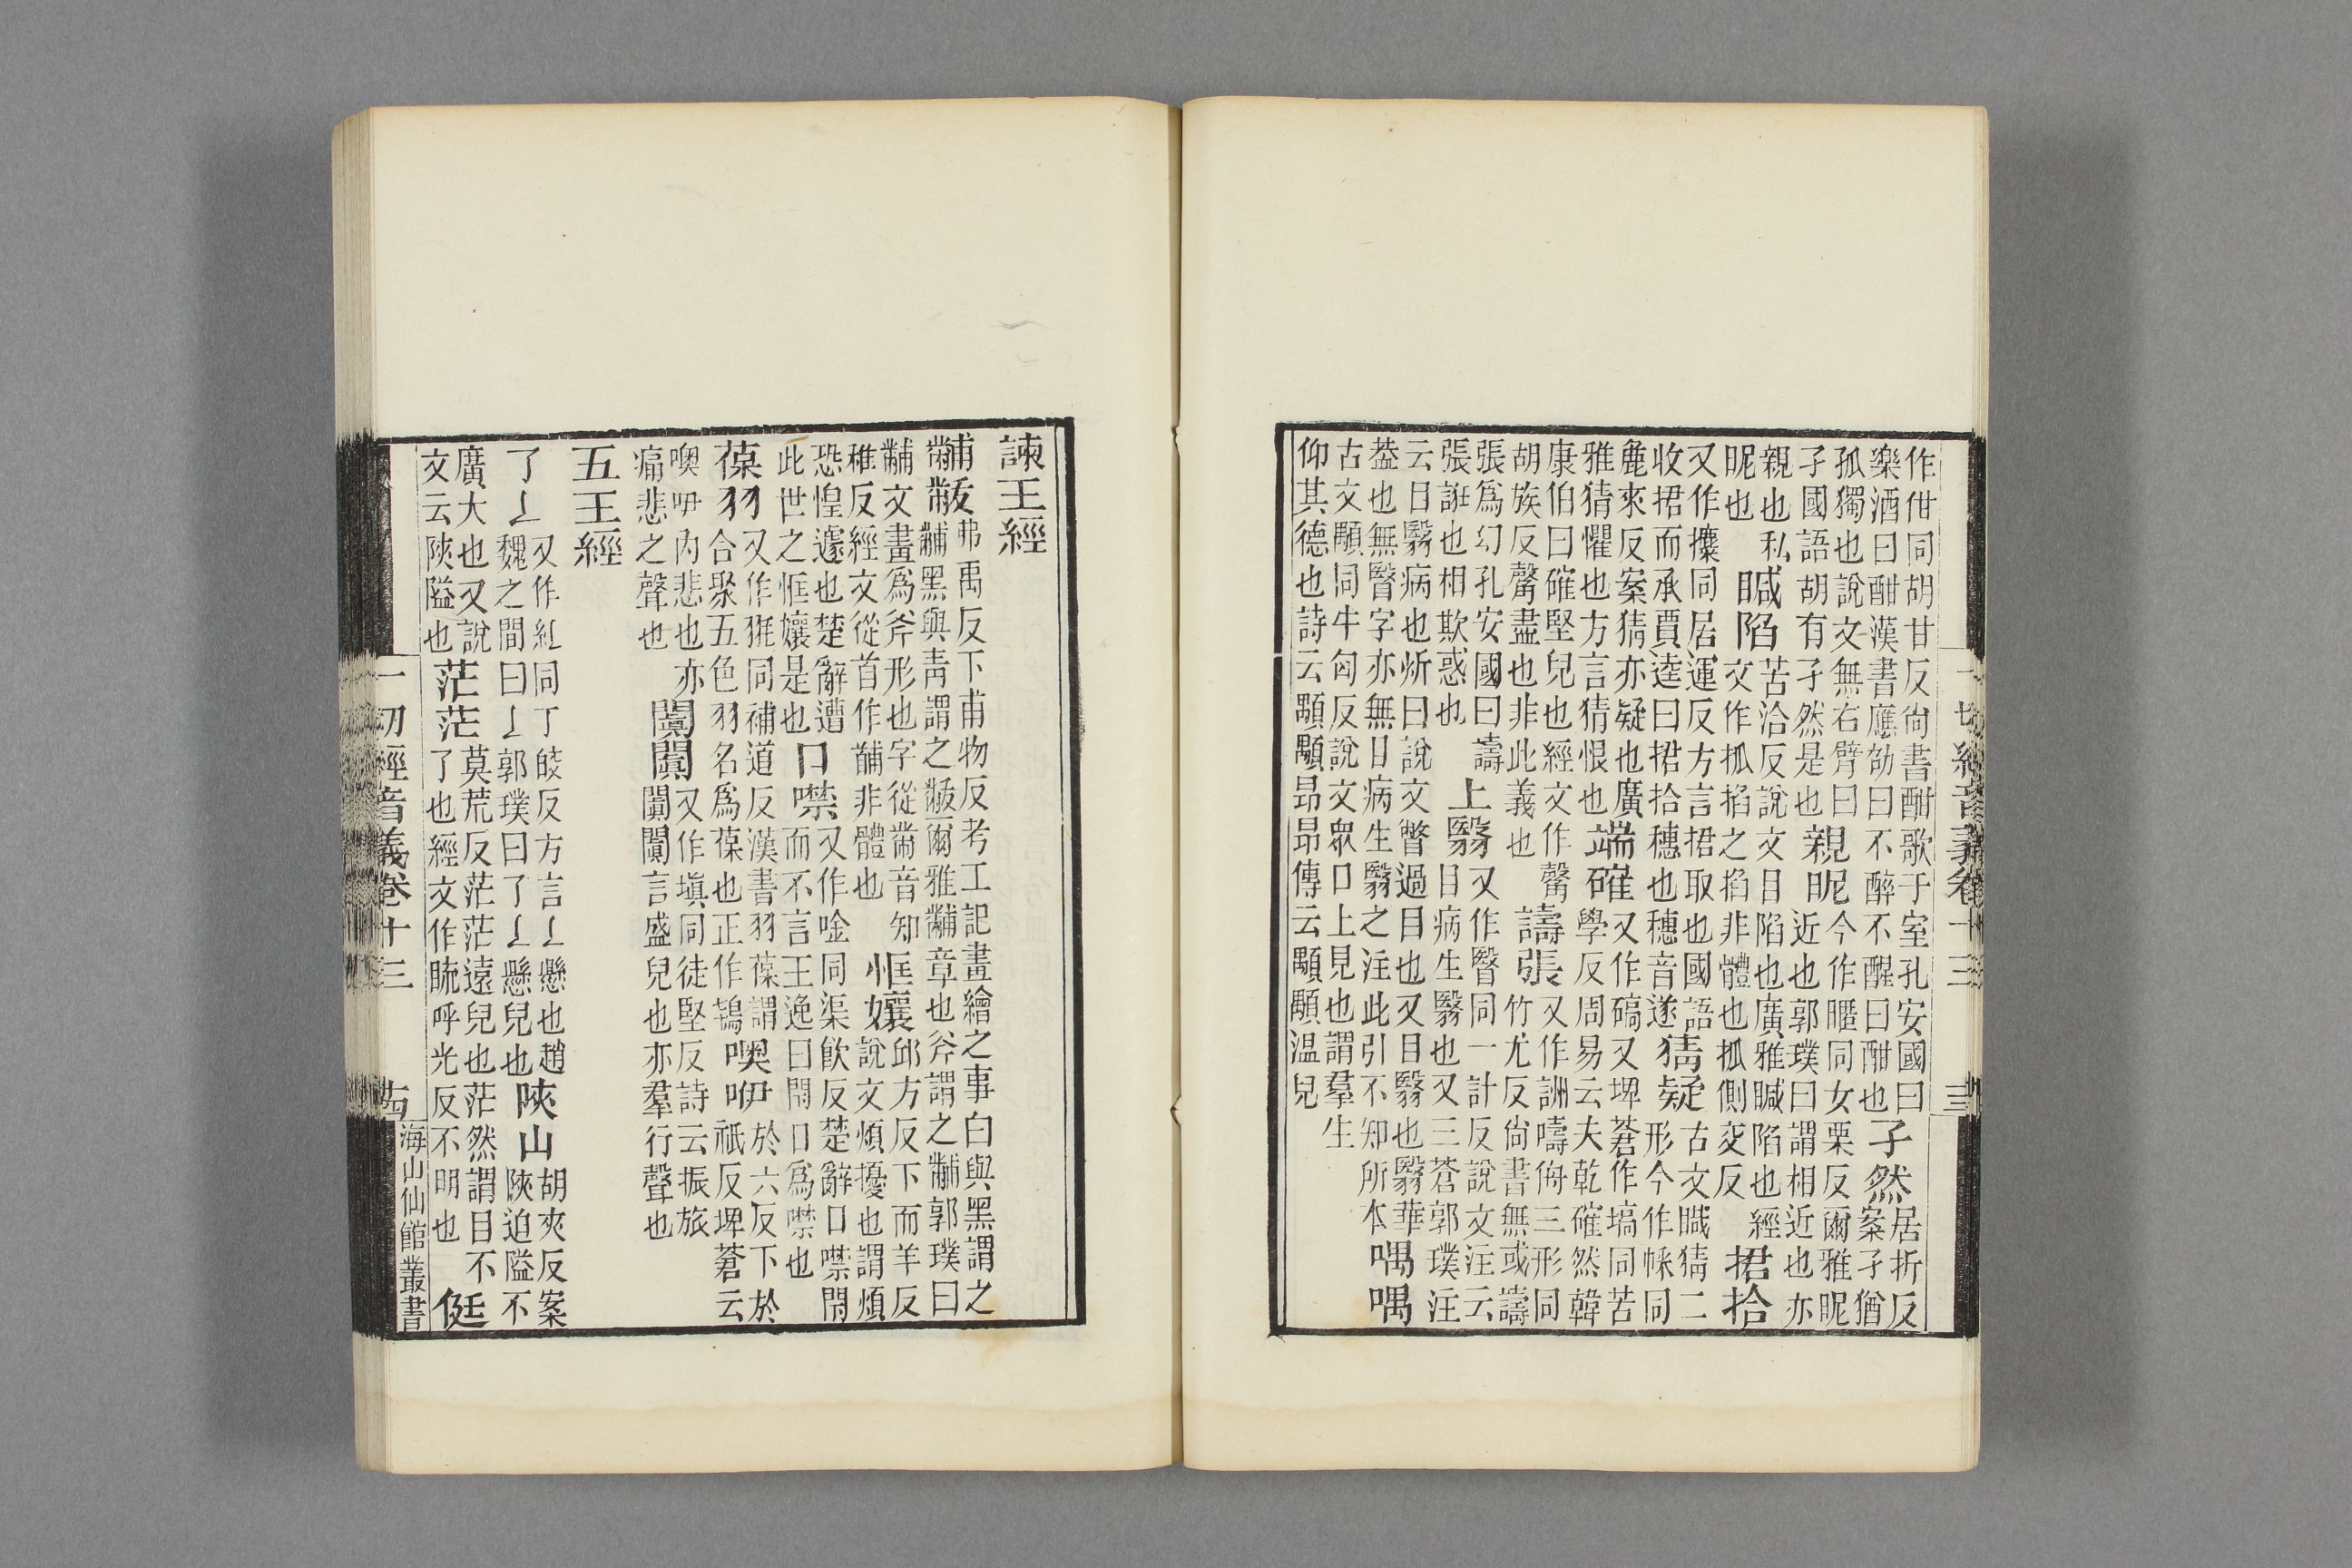 作佄同胡甘反尙書酣歌于室孔安國曰
樂酒曰酣漢書應劭曰不醉不醒曰酣也
孑然
居折反
案孑猶
孤獨也說文無右臂曰
孑國語胡有孑然是也
親昵
今作暱同女栗反爾雅昵
近也郭璞曰謂相近也亦
親也私
昵也
瞴陷
苦洽反說文目陷也廣雅瞴陷也經
文作抓掐之掐非體也抓側交反
捃拾
又作攗同居運反方言捃取也國語
收捃而承賈逵曰捃拾穗也穗音遂
猜疑
古文䁫猜二
形今作倸同
麁來反案猜亦疑也廣
雅猜懼也方言猜恨也
端確
又作碻又埤蒼作塙同苦
學反周易云夫乾確然韓
康伯曰確堅皃也經文作㲉
胡族反㲉盡也非此義也
譸張
又作詶嚋侜三形同
竹尤反尙書無或譸
張爲幻孔安國曰譸
張誑也相欺惑也
上翳
又作瞖同一計反說文注云
目病生翳也又三蒼郭璞注
云目翳病也炘曰說文瞥過目也又目翳也翳華
葢也無瞖字亦無目病生翳之注此引不知所本
喁喁
古文顒同牛匈反說文眾口上見也謂羣生
仰其德也詩云顒顒昂昂傳云顒顒温皃
一切經音義卷十三
諫王經
黼黻
弗禹反下甫物反考工記畫繪之事白與黑謂之
黼黑與靑謂之黻爾雅黼章也斧謂之黼郭璞曰
黼文畫爲斧形也字從黹音知
稚反經文從首作䩉非體也
恇孃
邱方反下而羊反
說文煩擾也謂煩
恐惶遽也楚辭遭
此世之恇孃是也
口噤
又作唫同渠飮反楚辭口噤閉
而不言王逸曰閉口爲噤也
葆羽
又作㲝同補道反漢書羽葆謂
合聚五色羽名爲葆也正作鴇
噢咿
於六反下於
祇反埤蒼云
噢咿內悲也亦
痛悲之聲也
闐闐
又作塡同徒堅反詩云振旅
闐闐言盛皃也亦羣行聲也
五王經
了𠄌
又作紅同丁皎反方言𠄌懸也趙
魏之間曰𠄌郭璞曰了𠄌懸皃也
陜山
胡夾反案
陜迫隘不
廣大也又說
文云陜隘也
茫茫
莫荒反茫茫遠皃也茫然謂目不
了也經文作䀮呼光反不明也
侹
一切經音義卷十三
海山仙館叢書